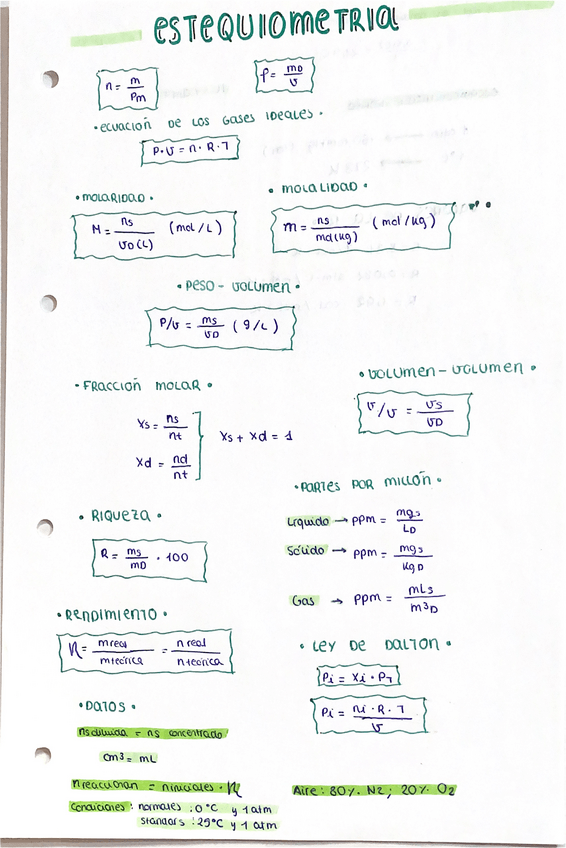 ESTEQUIOMETRIA
n = m / Pm
ρ = mD / v
• ECUACIÓN DE LOS GASES IDEALES •
P · V = n · R · T
• MOLARIDAD •
M = ns / VD (L) (mol/L)
• MOLALIDAD •
m = ns / md (kg) (mol/kg)
• PESO - VOLUMEN •
P/V = ms / VD (g/L)
• FRACCIÓN MOLAR •
Xs = ns / nt
Xd = nd / nt
Xs + Xd = 1
• VOLUMEN - VOLUMEN •
V/V = VS / VD
• PARTES POR MILLÓN •
Líquido → ppm = mgs / LD
Sólido → ppm = mgs / KgD
Gas → ppm = mLs / m³D
• RIQUEZA •
R = ms / mD · 100
• RENDIMIENTO •
η = mreal / mteórica = nreal / nteórica
• LEY DE DALTON •
Pi = Xi · PT
Pi = ni · R · T / V
• DATOS •
ns diluida = ns concentrado
cm³ = mL
nreaccionan = niniciales · η
Condiciones : normales : 0°C y 1 atm
standars : 25°C y 1 atm
Aire : 80% N2 ; 20% O2